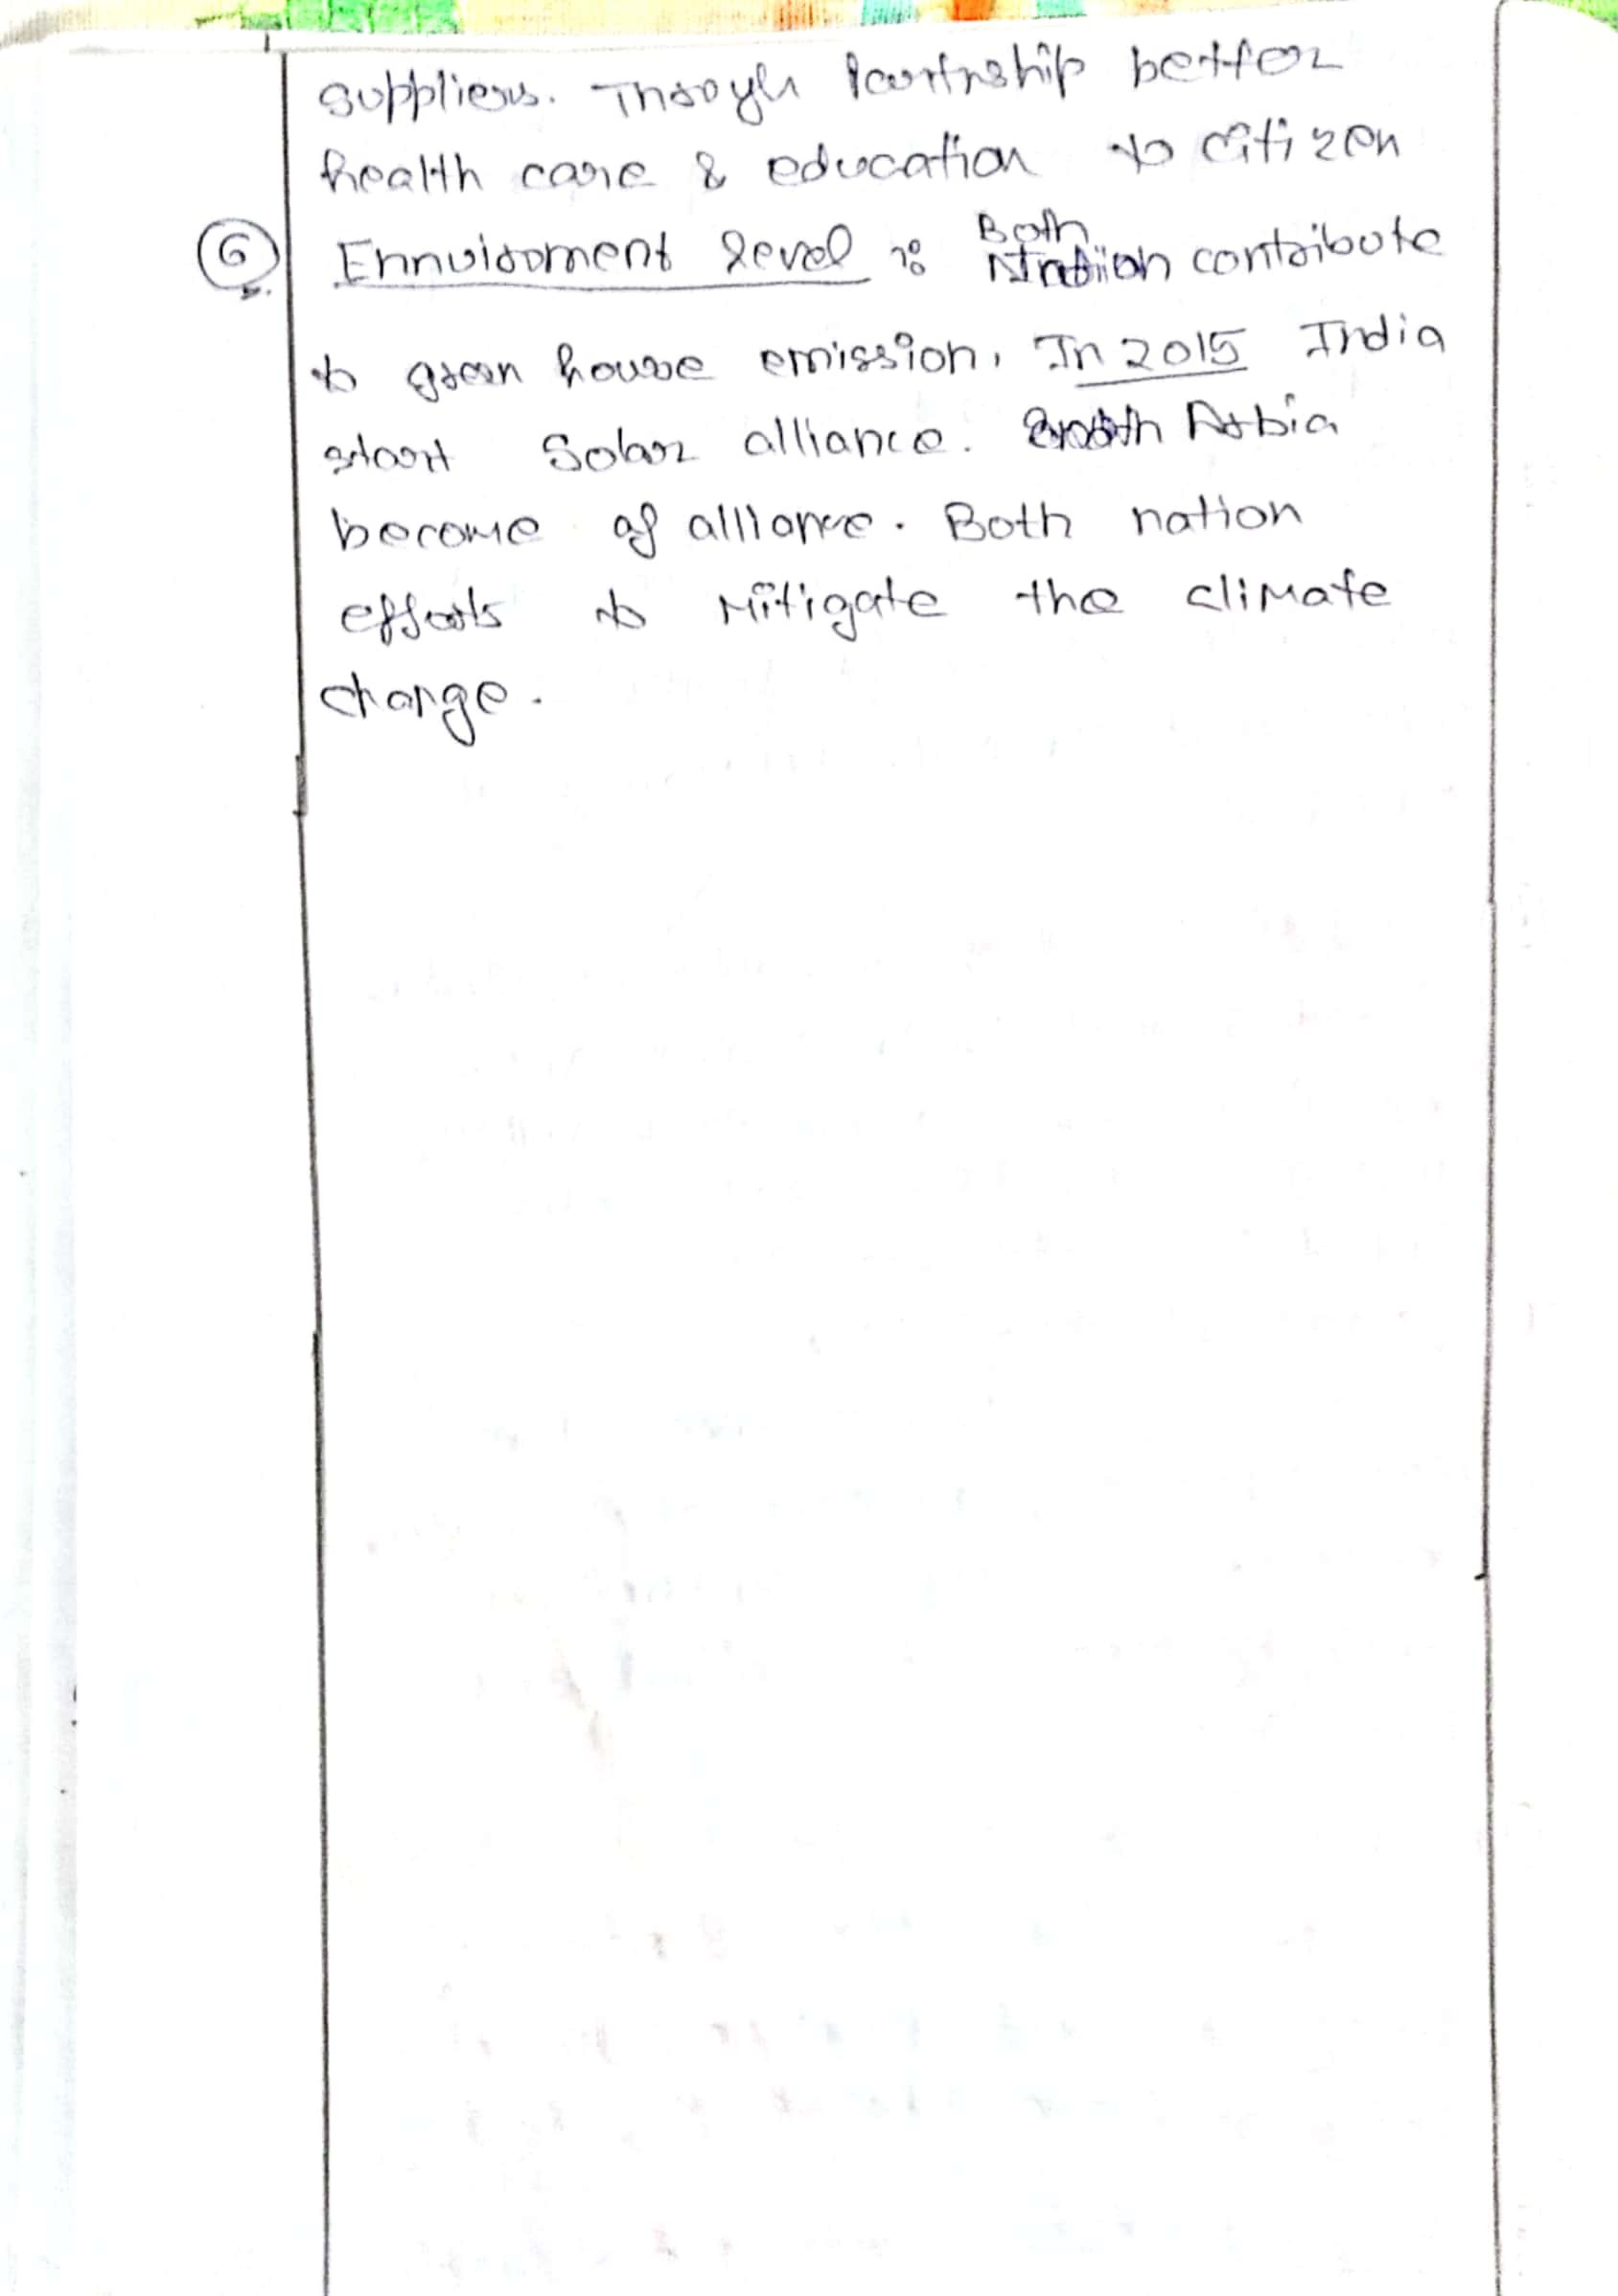 suppliers. Through Partnship better
health care & education to citizen
6 Ennvisoment level :- Both
Nation contribute
to green house emission. In 2015 India
start Solar alliance. Arbia
become of alliance. Both nation
efforts to Mitigate the cliMate
change.